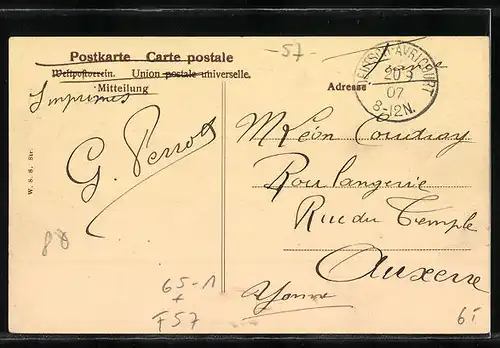 -57-
Postkarte Carte postale
Weltpostverein. Union postale universelle.
Mitteilung
Imprimés
G. Perrot
W. S. S. Str.
Adresse
DEUTSCH-AVRICOURT
20 3
07
8-12N.
M Léon Coudray
Boulangerie
Rue du Temple
Auxerre
Yonne
65-1
+
F57